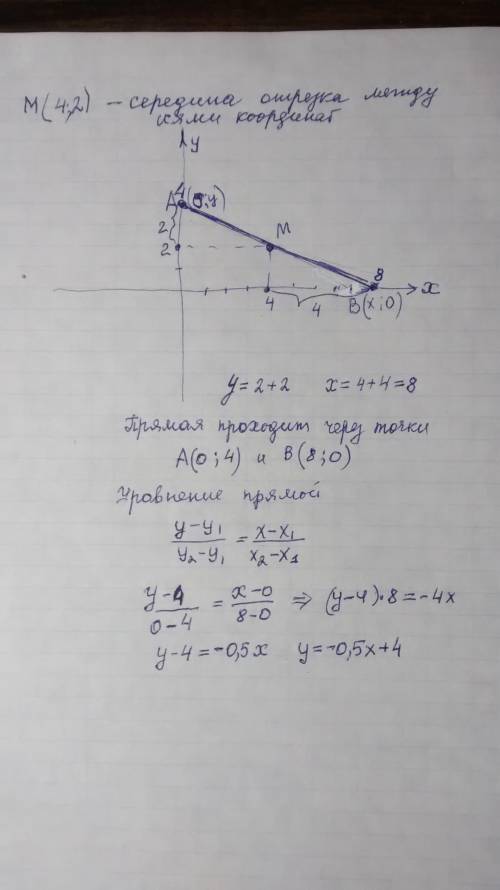 M(4;2) – середина отрезка между
осями координат
y
4
A(0;y)
2
2
M
8
4
4
B(x;0)
x
y=2+2 x=4+4=8
Прямая проходит через точки
A(0;4) и B(8;0)
Уравнение прямой
y-y₁/y₂-y₁ = x-x₁/x₂-x₁
y-4/0-4 = x-0/8-0 ⇒ (y-4)•8=-4x
y-4=-0,5x y=-0,5x+4